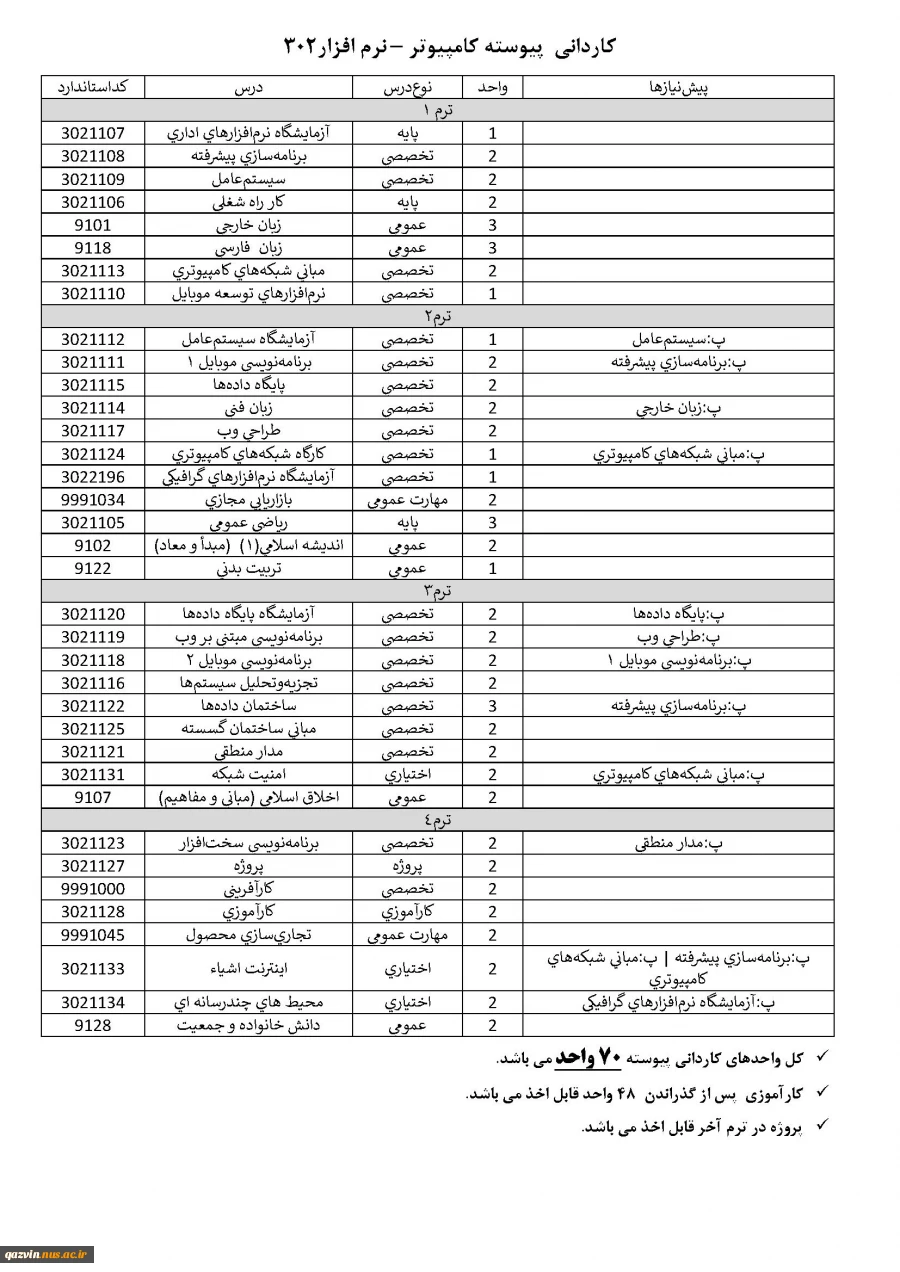 کاردانی پیوسته کامپیوتر –نرم افزار۳۰۲
پیش‌نیازها واحد نوع‌درس درس کداستاندارد
ترم ۱
1 پایه آزمایشگاه نرم‌افزارهاي اداري 3021107
2 تخصصی برنامه‌سازي پیشرفته 3021108
2 تخصصی سیستم‌عامل 3021109
2 پایه کار راه شغلی 3021106
3 عمومی زبان خارجی 9101
3 عمومی زبان فارسی 9118
2 تخصصی مبانی شبکه‌هاي کامپیوتري 3021113
1 تخصصی نرم‌افزارهاي توسعه موبایل 3021110
ترم۲
پ:سیستم‌عامل 1 تخصصی آزمایشگاه سیستم‌عامل 3021112
پ:برنامه‌سازي پیشرفته 2 تخصصی برنامه‌نویسی موبایل ۱ 3021111
2 تخصصی پایگاه داده‌ها 3021115
پ:زبان خارجي 2 تخصصی زبان فنی 3021114
2 تخصصی طراحي وب 3021117
پ:مباني شبکه‌هاي کامپیوتري 1 تخصصی کارگاه شبکه‌هاي کامپیوتري 3021124
1 تخصصی آزمایشگاه نرم‌افزارهاي گرافیکی 3022196
2 مهارت عمومی بازاریابي مجازي 9991034
3 پایه ریاضی عمومی 3021105
2 عمومی اندیشه اسلامي(۱) (مبدأ و معاد) 9102
1 عمومی تربیت بدني 9122
ترم۳
پ:پایگاه داده‌ها 2 تخصصی آزمایشگاه پایگاه داده‌ها 3021120
پ:طراحي وب 2 تخصصی برنامه‌نویسی مبتنی بر وب 3021119
پ:برنامه‌نویسی موبایل ۱ 2 تخصصی برنامه‌نویسی موبایل ۲ 3021118
2 تخصصی تجزیه‌وتحلیل سیستم‌ها 3021116
پ:برنامه‌سازي پیشرفته 3 تخصصی ساختمان داده‌ها 3021122
2 تخصصی مباني ساختمان گسسته 3021125
2 تخصصی مدار منطقی 3021121
پ:مباني شبکه‌هاي کامپیوتري 2 اختیاري امنیت شبکه 3021131
2 عمومی اخلاق اسلامی (مبانی و مفاهیم) 9107
ترم٤
پ:مدار منطقی 2 تخصصی برنامه‌نویسی سخت‌افزار 3021123
2 پروژه پروژه 3021127
2 تخصصی کارآفرینی 9991000
2 کارآموزي کارآموزي 3021128
2 مهارت عمومی تجاري‌سازي محصول 9991045
پ:برنامه‌سازي پیشرفته | پ:مباني شبکه‌هاي
کامپیوتري 2 اختیاري اینترنت اشیاء 3021133
پ:آزمایشگاه نرم‌افزارهاي گرافیکی 2 اختیاري محیط هاي چندرسانه اي 3021134
2 عمومی دانش خانواده و جمعیت 9128
✓ کل واحدهای کاردانی پیوسته ۷۰ واحد می باشد.
✓ کارآموزی پس از گذراندن ۴۸ واحد قابل اخذ می باشد.
✓ پروژه در ترم آخر قابل اخذ می باشد.
qazvin.nus.ac.ir